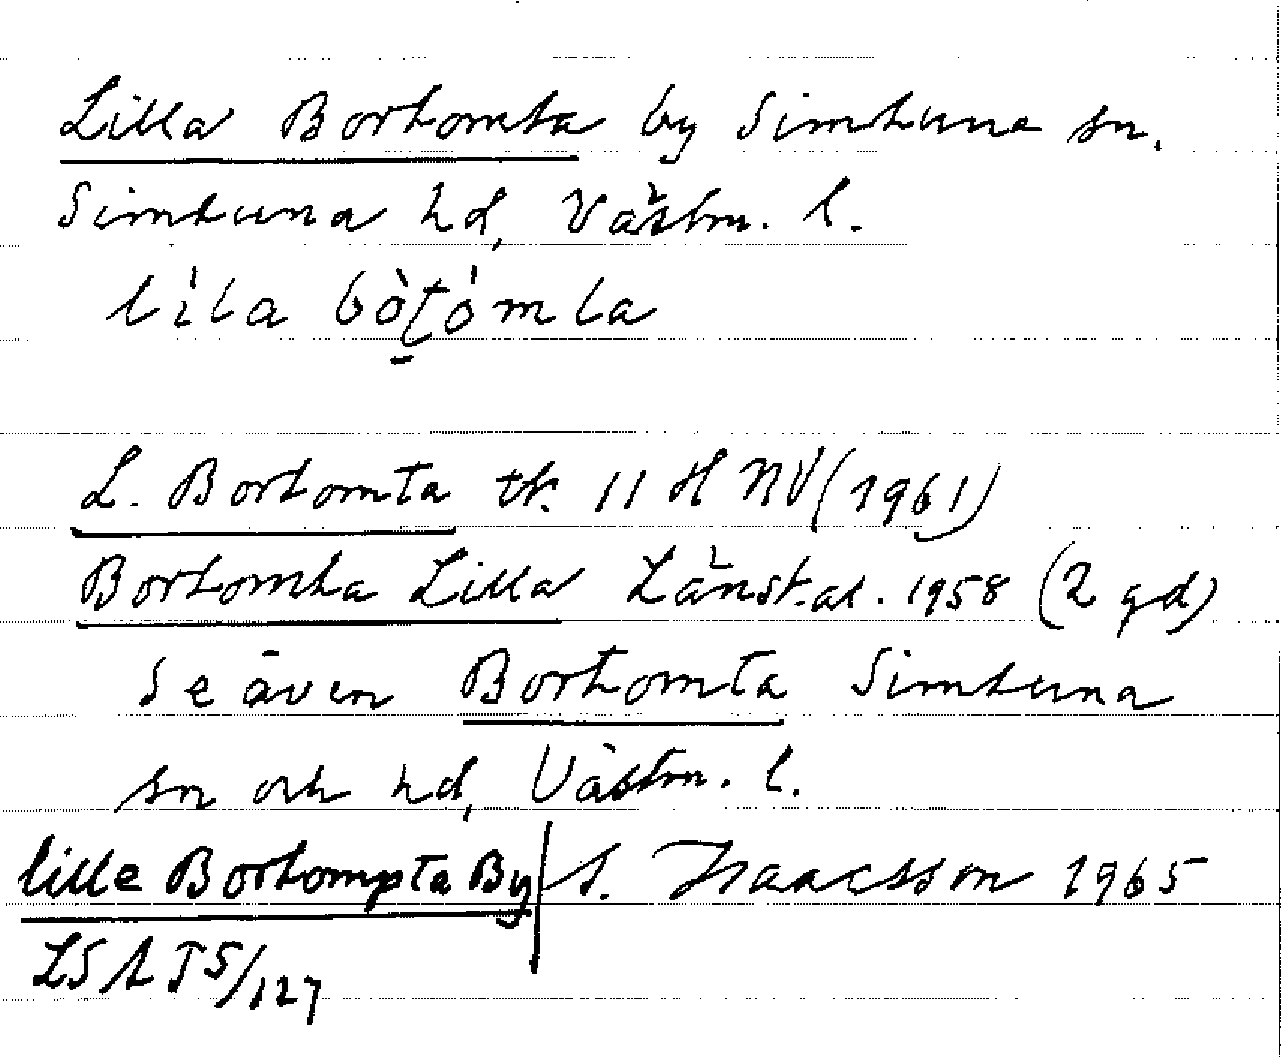 Lilla Bortomta by Simtuna sn.
Simtuna hd, Västm. l.
lìla bòţómta
L. Bortomta tk. 11 H NV (1961)
Bortomta Lilla Länst.al. 1958 (2 gd)
Se även Bortomta Simtuna
sn och hd, Västm. l.
lille Bortompta By S. Isaacsson 1965
LSA T5/127